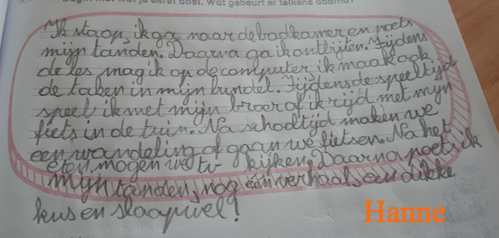 Begin met wat je eerst doet. Wat gebeurt er telkens daarna?
Ik staop, ik ga naar de badkamer en poets
mijn tanden. Daarna ga ik ontbijten. Tijdens
de les mag ik op de computer ik maak ook
de taken in mijn bundel. Tijdens de speeltijd
speel ik met mijn broer of ik rijd met mijn
fiets in de tuin. Na schooltijd maken we
een wandeling of gaan we fietsen. Na het
eten mogen we tv kijken. Daarna poets ik
mijn tanden, nog één verhaal, een dikke
kus en slaapwel!
Hanne